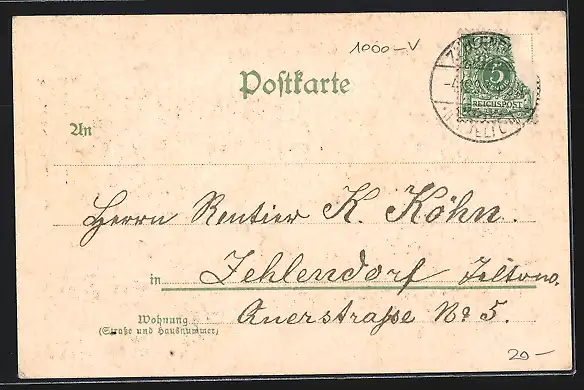 1000-V
Postkarte
5
REICHSPOST
An
Herrn Rentier K. Köhn.
in Zehlendorf
Wohnung
(Straße und Hausnummer)
Auerstraße No 5.
20-